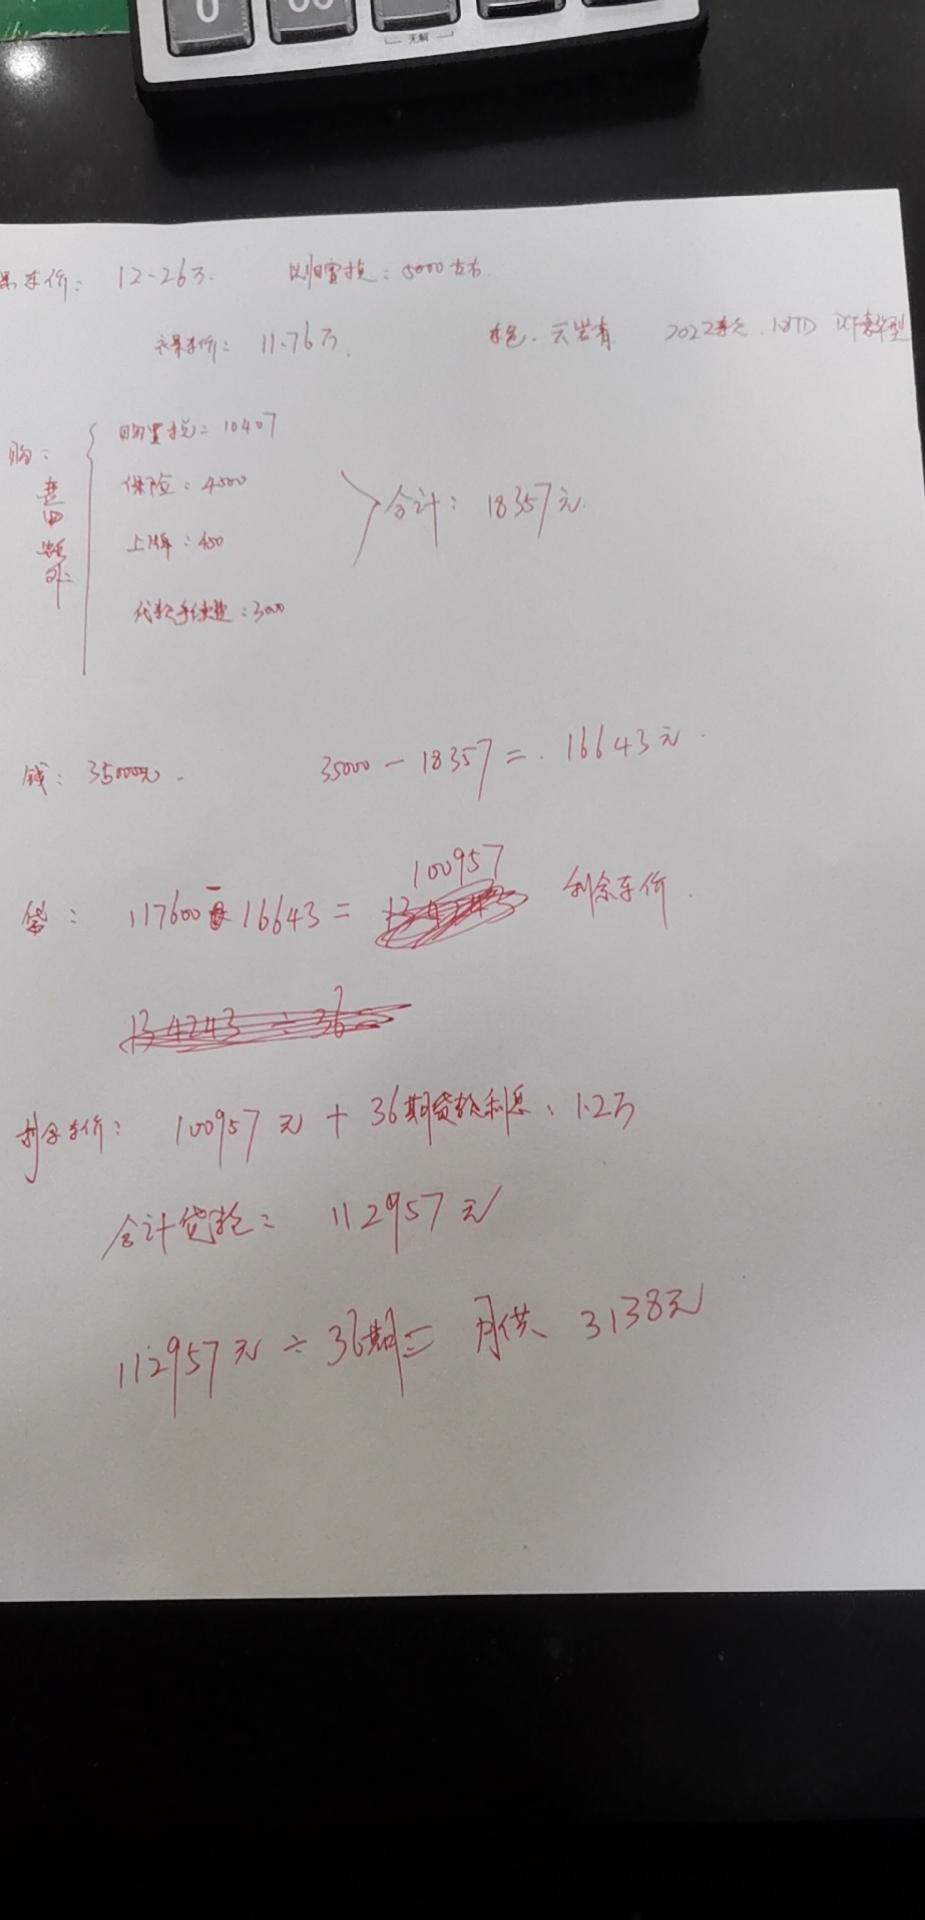 0 00
无解
车价: 12.26万. 以旧置换: 5000左右.
裸车价: 11.76万. 车色. 云岩青 2022款 豪华型
购:
购置税: 10407
保险: 4500
上牌: 450
合计: 18357元.
额外:
代款手续费: 3000
钱: 35000元. 35000 - 18357 = 16643元.
贷: 117600 - 16643 = 100957 剩余车价.
134243 ÷ 36
剩余车价: 100957元 + 36期贷款利息: 1.2万
合计贷款: 112957元
112957元 ÷ 36期 = 月供 3138元